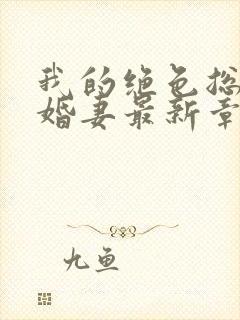 我的绝色总
婚妻最新章
九鱼